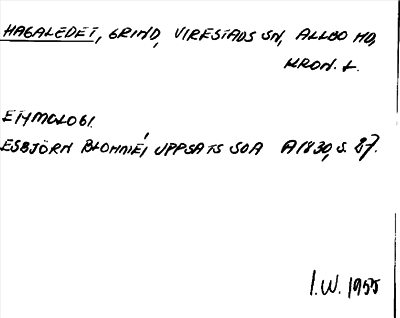 HAGALEDET, GRIND, VIRESTADS SN, ALLBO HD,
KRON. L.
ETYMOLOGI.
ESBJÖRN BLOHMÉ, UPPSATS SOA A1830, S. 87.
I.W. 1955